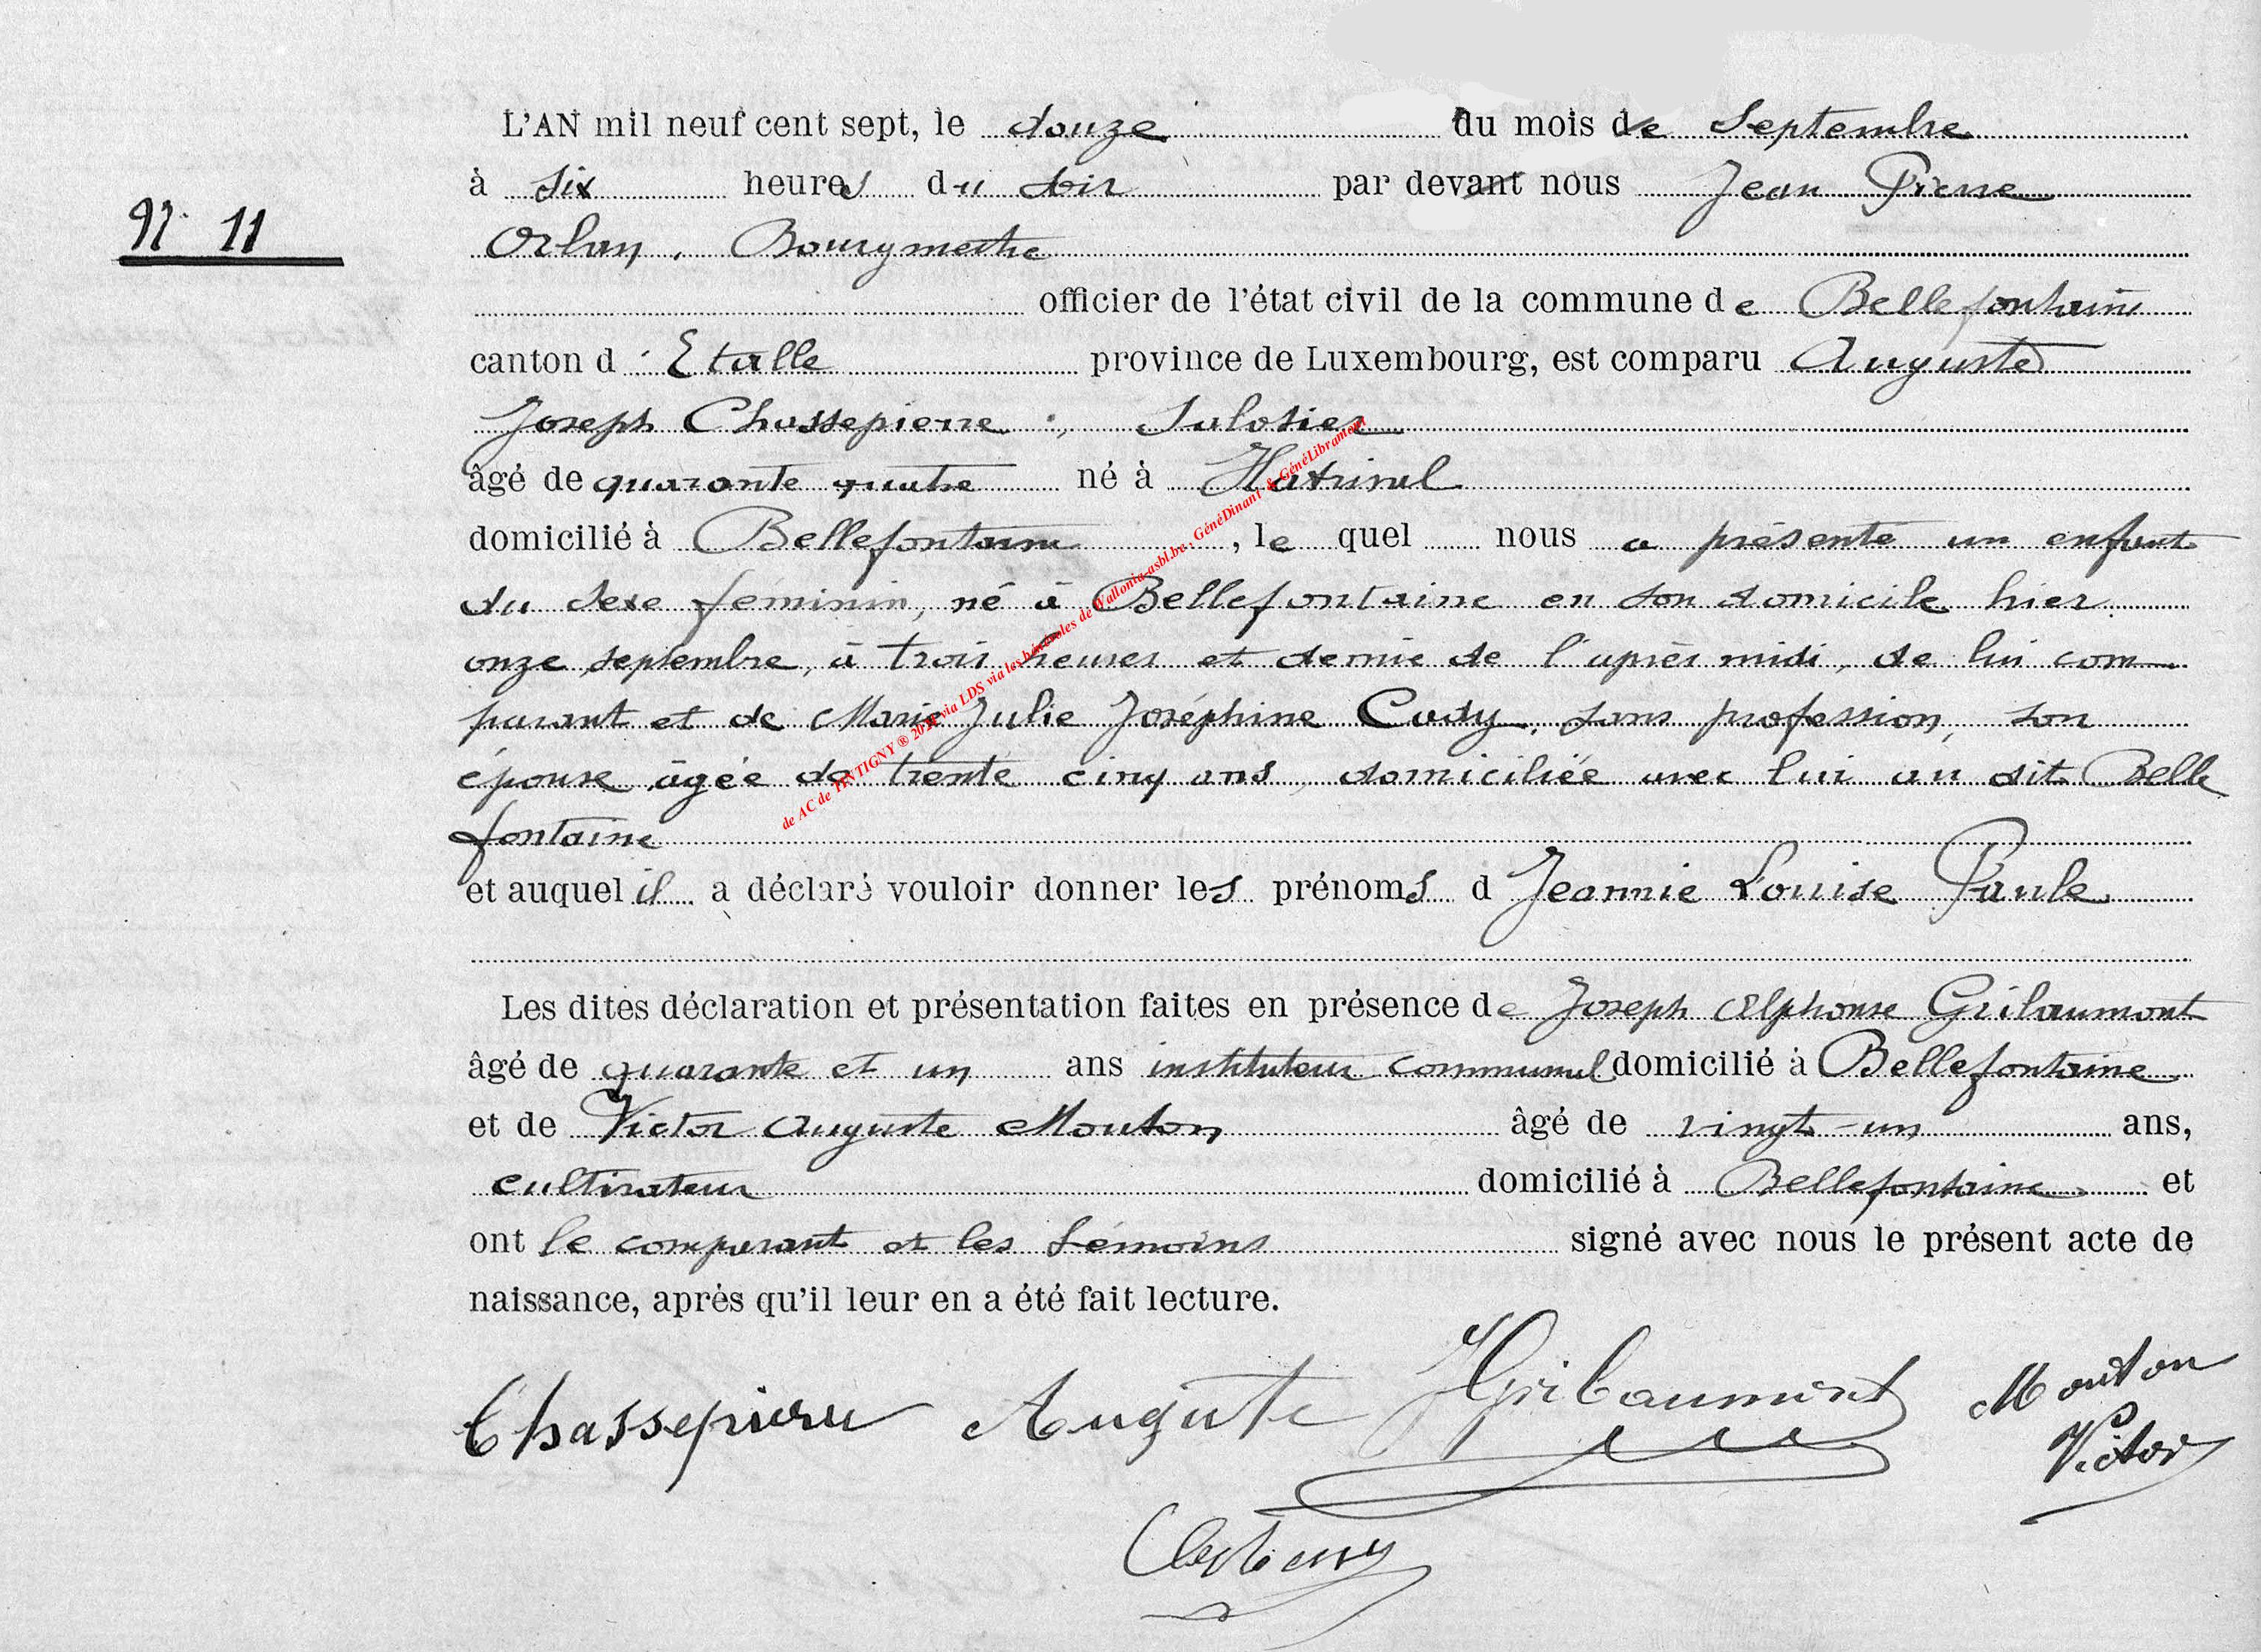 L'AN mil neuf cent sept, le douze du mois de Septembre
à six heures du soir par devant nous Jean Pierre
N° 11
Orban, Bourgmestre
officier de l'état civil de la commune de Bellefontaine
canton d'Etalle province de Luxembourg, est comparu Auguste
Joseph Chassepierre, Sabotier
âgé de quarante quatre né à Hatrival
domicilié à Bellefontaine, le quel nous a présenté un enfant
du sexe féminin, né à Bellefontaine en son domicile hier
onze septembre, à trois heures et demie de l'après midi, de lui com
parant et de Marie Julie Joséphine Cady, sans profession, son
épouse âgée de trente cinq ans, domiciliée avec lui au dit Belle
fontaine
et auquel il a déclaré vouloir donner les prénoms d Jeannie Louise Paule
Les dites déclaration et présentation faites en présence de Joseph Alphonse Gribaumont
âgé de quarante et un ans instituteur communal domicilié à Bellefontaine
et de Victor Auguste Mouton âgé de vingt-un ans,
cultivateur domicilié à Bellefontaine et
ont le comparant et les témoins signé avec nous le présent acte de
naissance, après qu'il leur en a été fait lecture.
Chassepierre Auguste JGribaumont Mouton
Victor
de AC de TINTIGNY ® via LDS via les bénévoles de Wallonia-asbl.be, GénéDinant & GénéLibramont